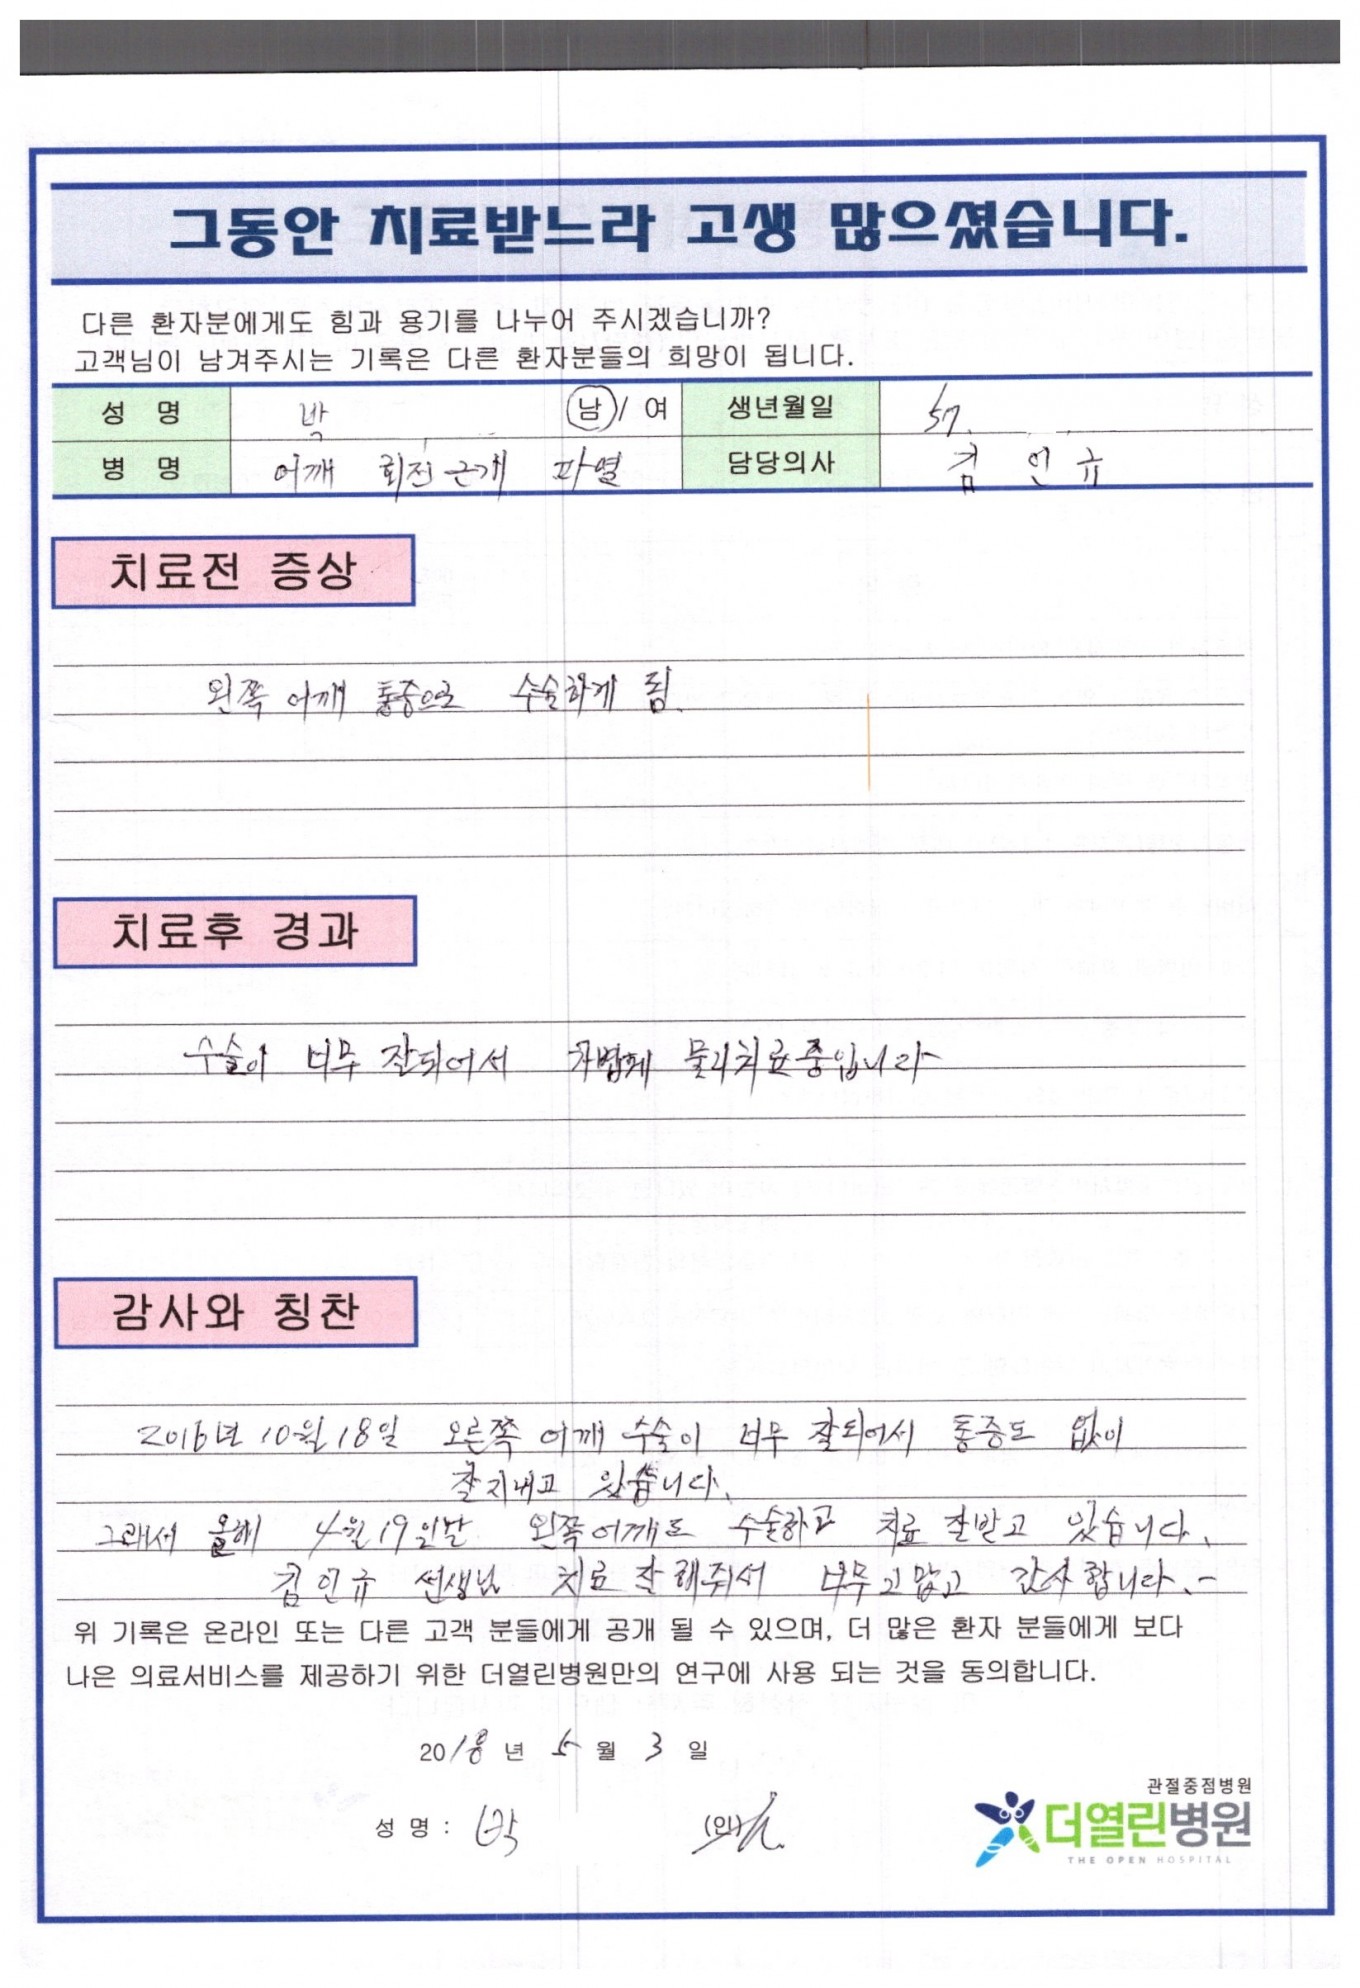 그동안 치료받느라 고생 많으셨습니다.
다른 환자분에게도 힘과 용기를 나누어 주시겠습니까?
고객님이 남겨주시는 기록은 다른 환자분들의 희망이 됩니다.
성 명 박 남 / 여 생년월일 57.
병 명 어깨 회전근개 파열 담당의사 김 인 규
치료전 증상
왼쪽 어깨 통증으로 수술하게 됨.
치료후 경과
수술이 너무 잘되어서 가볍게 물리치료중입니다
감사와 칭찬
2016년 10월 18일 오른쪽 어깨 수술이 너무 잘되어서 통증도 없이
잘지내고 있습니다.
그래서 올해 4월 19일날 왼쪽어깨도 수술하고 치료 잘받고 있습니다.
김인규 선생님 치료 잘해줘서 너무고맙고 감사합니다.-
위 기록은 온라인 또는 다른 고객 분들에게 공개 될 수 있으며, 더 많은 환자 분들에게 보다
나은 의료서비스를 제공하기 위한 더열린병원만의 연구에 사용 되는 것을 동의합니다.
2018년 5월 3일
성 명 : 박 (인)
관절중점병원
더열린병원
THE OPEN HOSPITAL